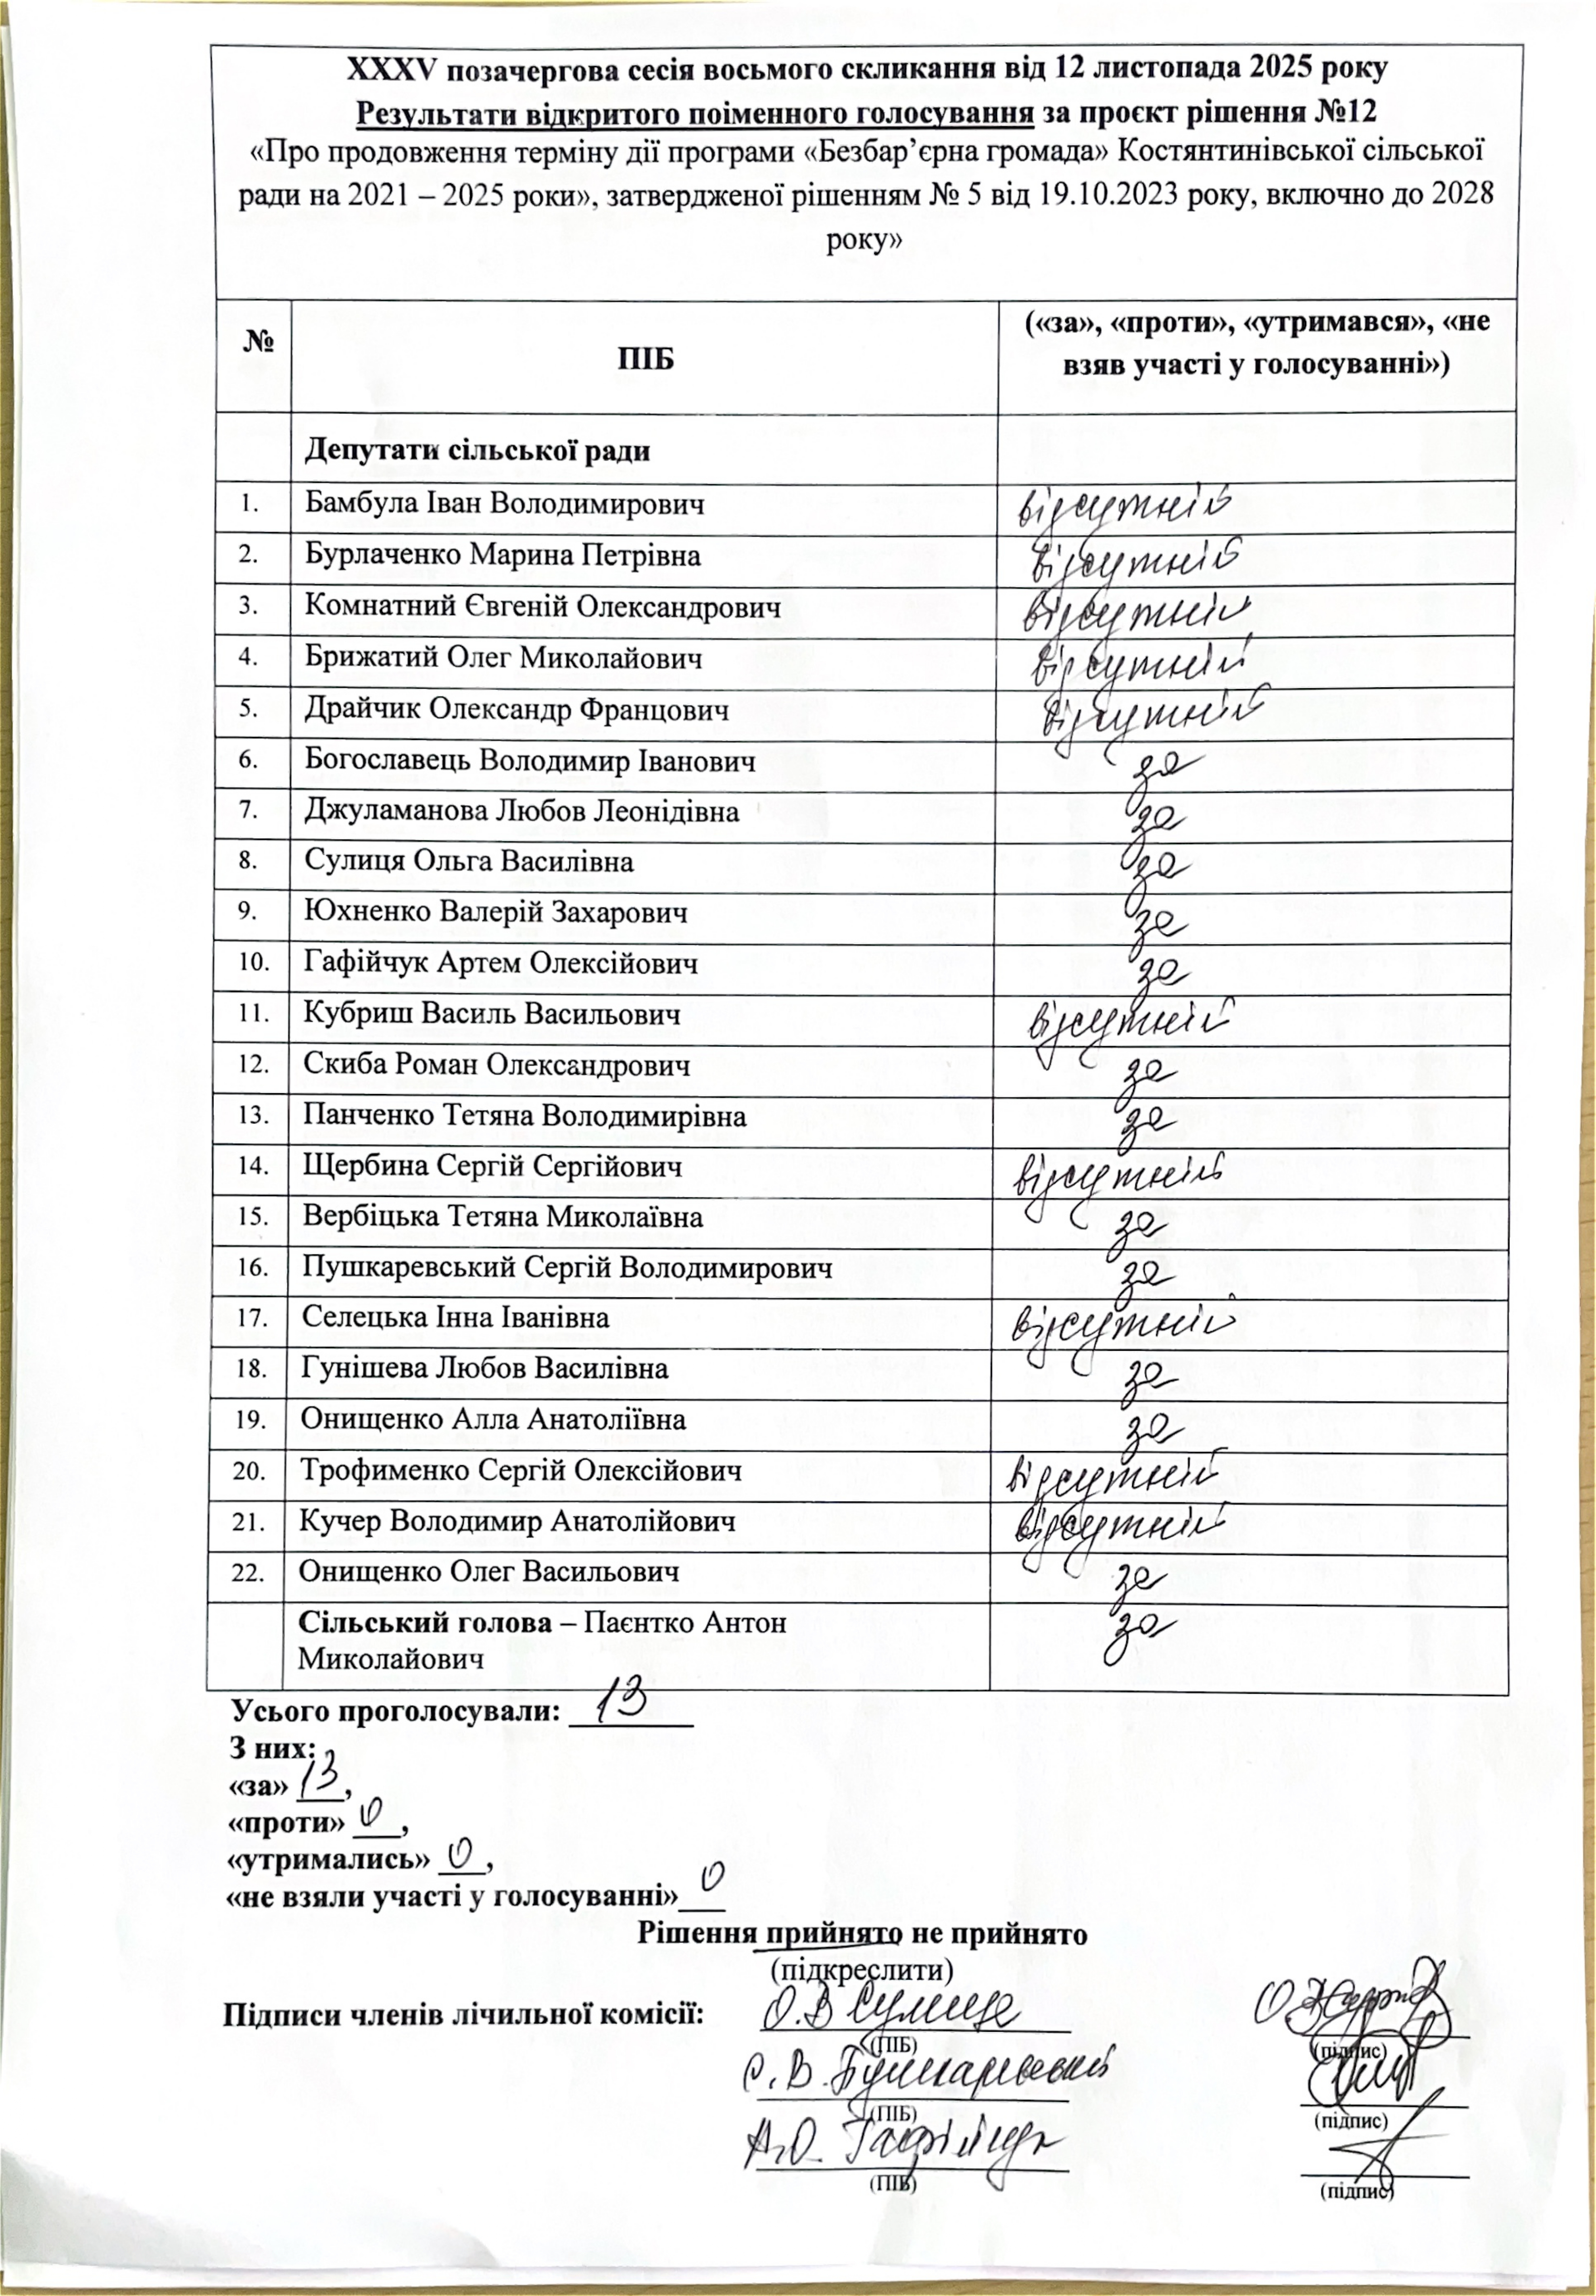 XXXV позачергова сесія восьмого скликання від 12 листопада 2025 року
Результати відкритого поіменного голосування за проєкт рішення №12
«Про продовження терміну дії програми «Безбар’єрна громада» Костянтинівської сільської
ради на 2021 – 2025 роки», затвердженої рішенням № 5 від 19.10.2023 року, включно до 2028
року»
№ ПІБ («за», «проти», «утримався», «не
взяв участі у голосуванні»)
Депутати сільської ради
1. Бамбула Іван Володимирович відсутній
2. Бурлаченко Марина Петрівна відсутній
3. Комнатний Євгеній Олександрович відсутній
4. Брижатий Олег Миколайович відсутній
5. Драйчик Олександр Францович відсутній
6. Богославець Володимир Іванович за
7. Джуламанова Любов Леонідівна за
8. Сулиця Ольга Василівна за
9. Юхненко Валерій Захарович за
10. Гафійчук Артем Олексійович за
11. Кубриш Василь Васильович відсутній
12. Скиба Роман Олександрович за
13. Панченко Тетяна Володимирівна за
14. Щербина Сергій Сергійович відсутній
15. Вербіцька Тетяна Миколаївна за
16. Пушкаревський Сергій Володимирович за
17. Селецька Інна Іванівна відсутній
18. Гунішева Любов Василівна за
19. Онищенко Алла Анатоліївна за
20. Трофименко Сергій Олексійович відсутній
21. Кучер Володимир Анатолійович відсутній
22. Онищенко Олег Васильович за
Сільський голова – Паєнтко Антон за
Миколайович
Усього проголосували: 13
З них:
«за» 13,
«проти» 0,
«утримались» 0,
«не взяли участі у голосуванні» 0
Рішення прийнято не прийнято
(підкреслити)
Підписи членів лічильної комісії: О.В Сулиця
(ПІБ) (підпис)
С.В. Пушкаревський
(ПІБ) (підпис)
А.О. Гафійчук
(ПІБ) (підпис)